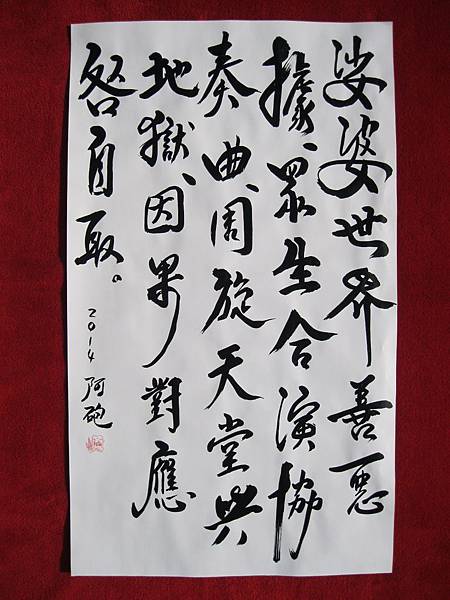 娑婆世界善惡
據、眾生合演協
奏曲、周旋天堂與
地獄、因果對應
咎自取。
2014 阿砲